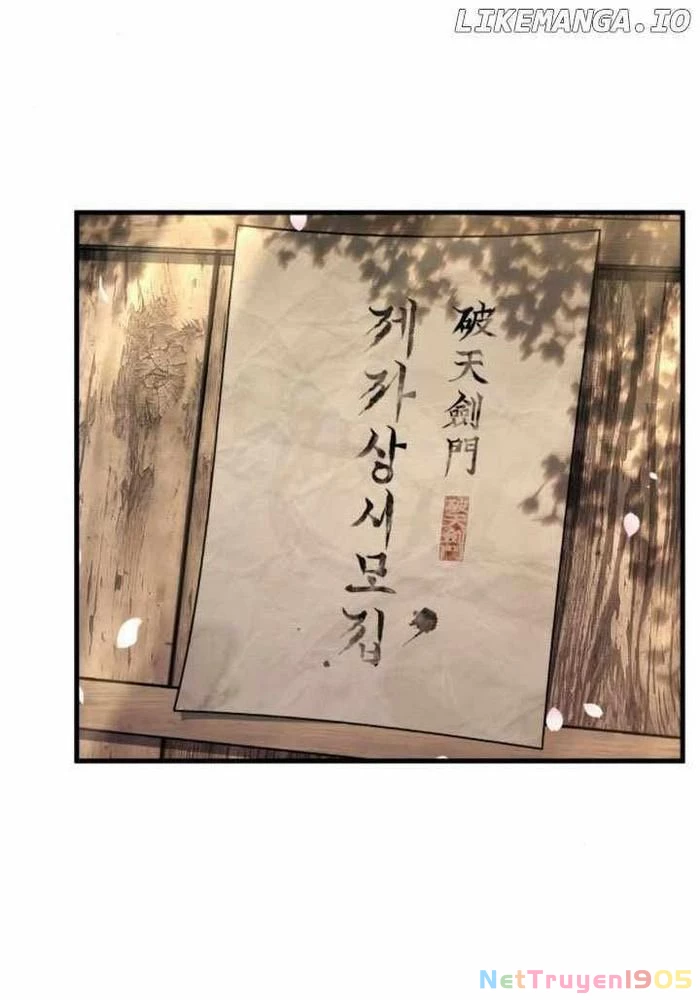 LIKEMANGA.IO
破天劍門
破天劍門
제자상시모집
NetTruyen1905